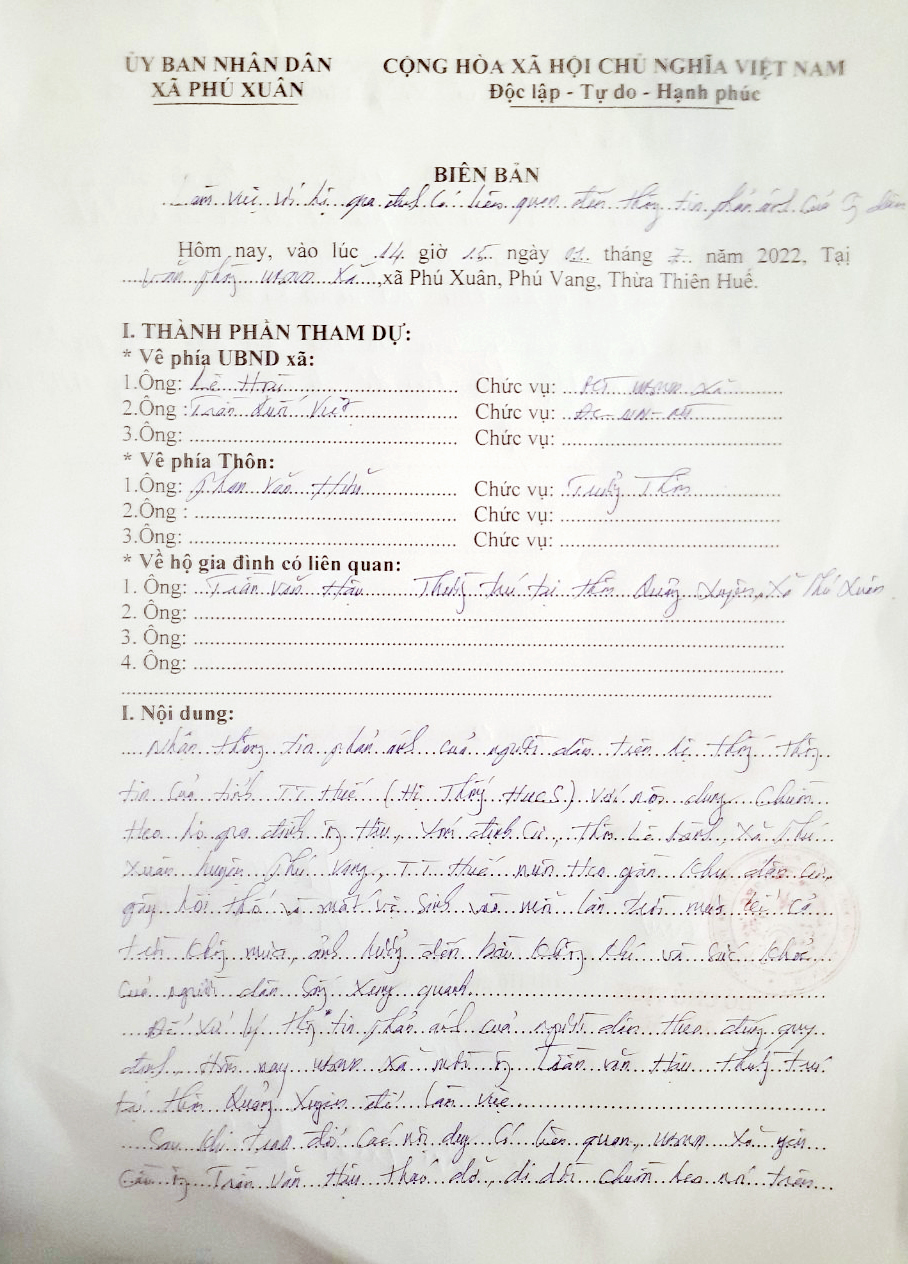 ỦY BAN NHÂN DÂN CỘNG HÒA XÃ HỘI CHỦ NGHĨA VIỆT NAM
XÃ PHÚ XUÂN Độc lập - Tự do - Hạnh phúc
BIÊN BẢN
Làm việc với hộ gia đình có liên quan đến thông tin phản ánh của
Hôm nay, vào lúc 14 giờ 15 ngày 01 tháng 7 năm 2022, Tại
Văn phòng UBND Xã, xã Phú Xuân, Phú Vang, Thừa Thiên Huế.
I. THÀNH PHẦN THAM DỰ:
* Về phía UBND xã:
1.Ông: Lê Chức vụ: UBND Xã
2.Ông : Trần Chức vụ: ĐC-NN-MT
3.Ông: Chức vụ:
* Về phía Thôn:
1.Ông: Phan Văn Chức vụ: Trưởng Thôn
2.Ông : Chức vụ:
3.Ông: Chức vụ:
* Về hộ gia đình có liên quan:
1. Ông: Trần Văn Hậu Thường trú tại thôn Quảng Xuyên, Xã Phú Xuân
2. Ông:
3. Ông:
4. Ông:
I. Nội dung:
Nhận thông tin phản ánh của người dân trên hệ thống thông
tin của tỉnh TT Huế (Hệ Thống HueS) với nội dung Chuồng
Heo hộ gia đình ông Hậu, Xóm định Cư, thôn Lê Bình, Xã Phú
Xuân huyện Phú Vang, TT Huế nuôi Heo gần khu dân cư,
gây hôi thối và mất vệ sinh vào mỗi lần trời mưa kể cả
trời không mưa, ảnh hưởng đến bầu không khí và sức khỏe
Của người dân Sống Xung quanh.
Để xử lý thông tin phản ánh của người dân theo đúng quy
định, Hôm nay UBND Xã mời ông Trần văn Hậu thường trú
tại thôn Quảng Xuyên đến làm việc.
Sau khi trao đổi Các nội dung Có liên quan, UBND Xã yêu
Cầu ông Trần Văn Hậu tháo dỡ, di dời Chuồng heo nói trên